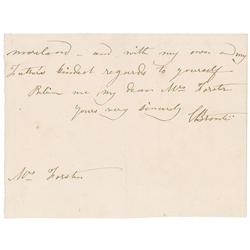 moreland - and with my own and my
Father's kindest regards to yourself
Believe me my dear Mrs Forster
Yours very sincerely
CBrontë
Mrs Forster